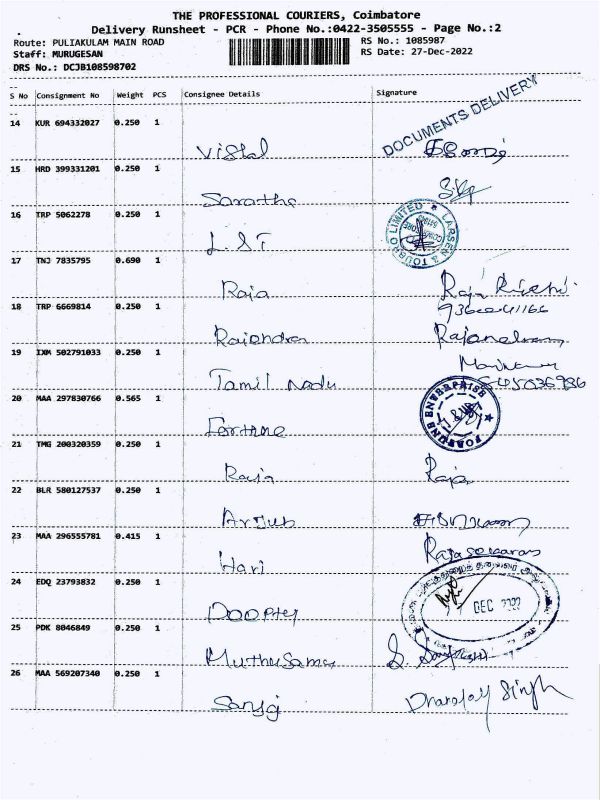 THE PROFESSIONAL COURIERS, Coimbatore
Delivery Runsheet - PCR - Phone No.:0422-3505555 - Page No.:2
Route: PULIAKULAM MAIN ROAD RS No.: 1085987
Staff: MURUGESAN RS Date: 27-Dec-2022
DRS No.: DCJB108598702
S No Consignment No Weight PCS Consignee Details Signature
DOCUMENTS DELIVERY
14 KUR 694332027 0.250 1
Vishal
15 HRD 399331201 0.250 1
Saratha
16 TRP 5062278 0.250 1
L&T
LARSEN & TOUBRO LIMITED
17 TNJ 7835795 0.690 1
Raja Raja
18 TRP 6669814 0.250 1
Rajendra
19 IXM 502791033 0.250 1
Tamil Nadu
20 MAA 297830766 0.565 1
Fortune
FORTUNE ENTERPRISE
21 TMG 200320359 0.250 1
Raja Raja
22 BLR 580127537 0.250 1
Arjun
23 MAA 296555781 0.415 1
Hari
24 EDQ 23793832 0.250 1
DEC 2022
25 PDK 8046849 0.250 1
Muthusamy
26 MAA 569207340 0.250 1
Singh